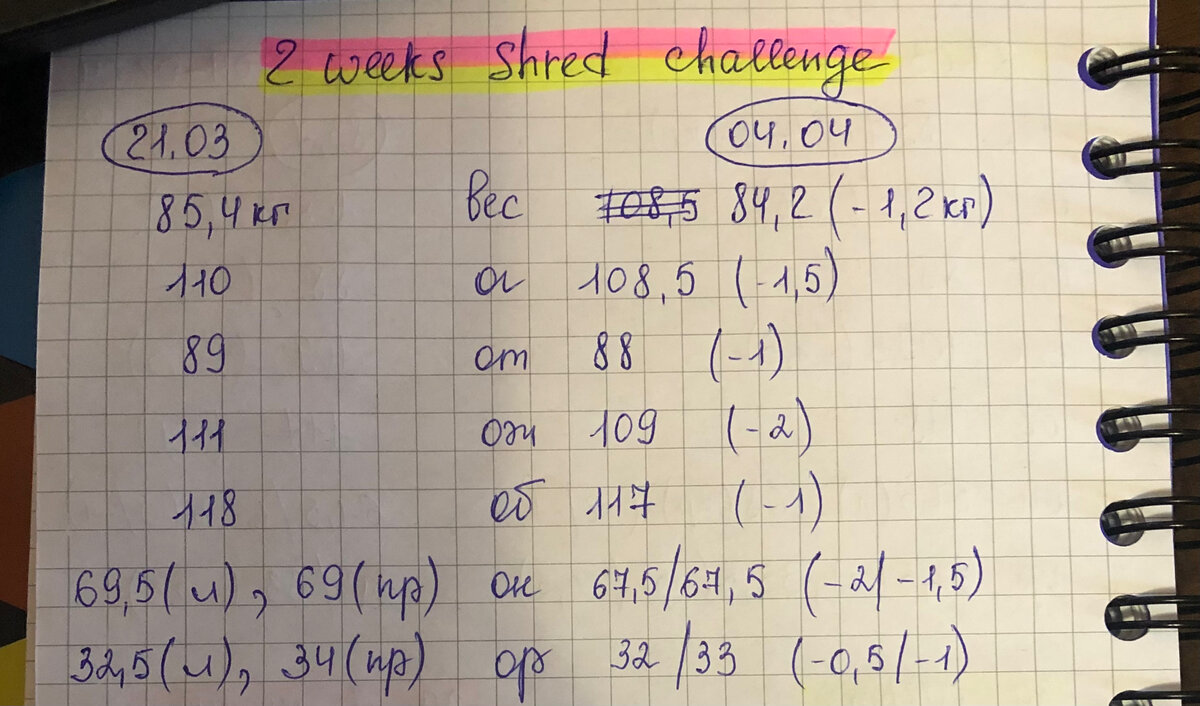 2 weeks shred challenge
21.03 04.04
85,4 кг вес 108,5 84,2 (-1,2 кг)
110 ог 108,5 (-1,5)
89 от 88 (-1)
111 ож 109 (-2)
118 об 117 (-1)
69,5 (л), 69 (пр) он 67,5/67,5 (-2/-1,5)
32,5 (л), 34 (пр) ор 32/33 (-0,5/-1)